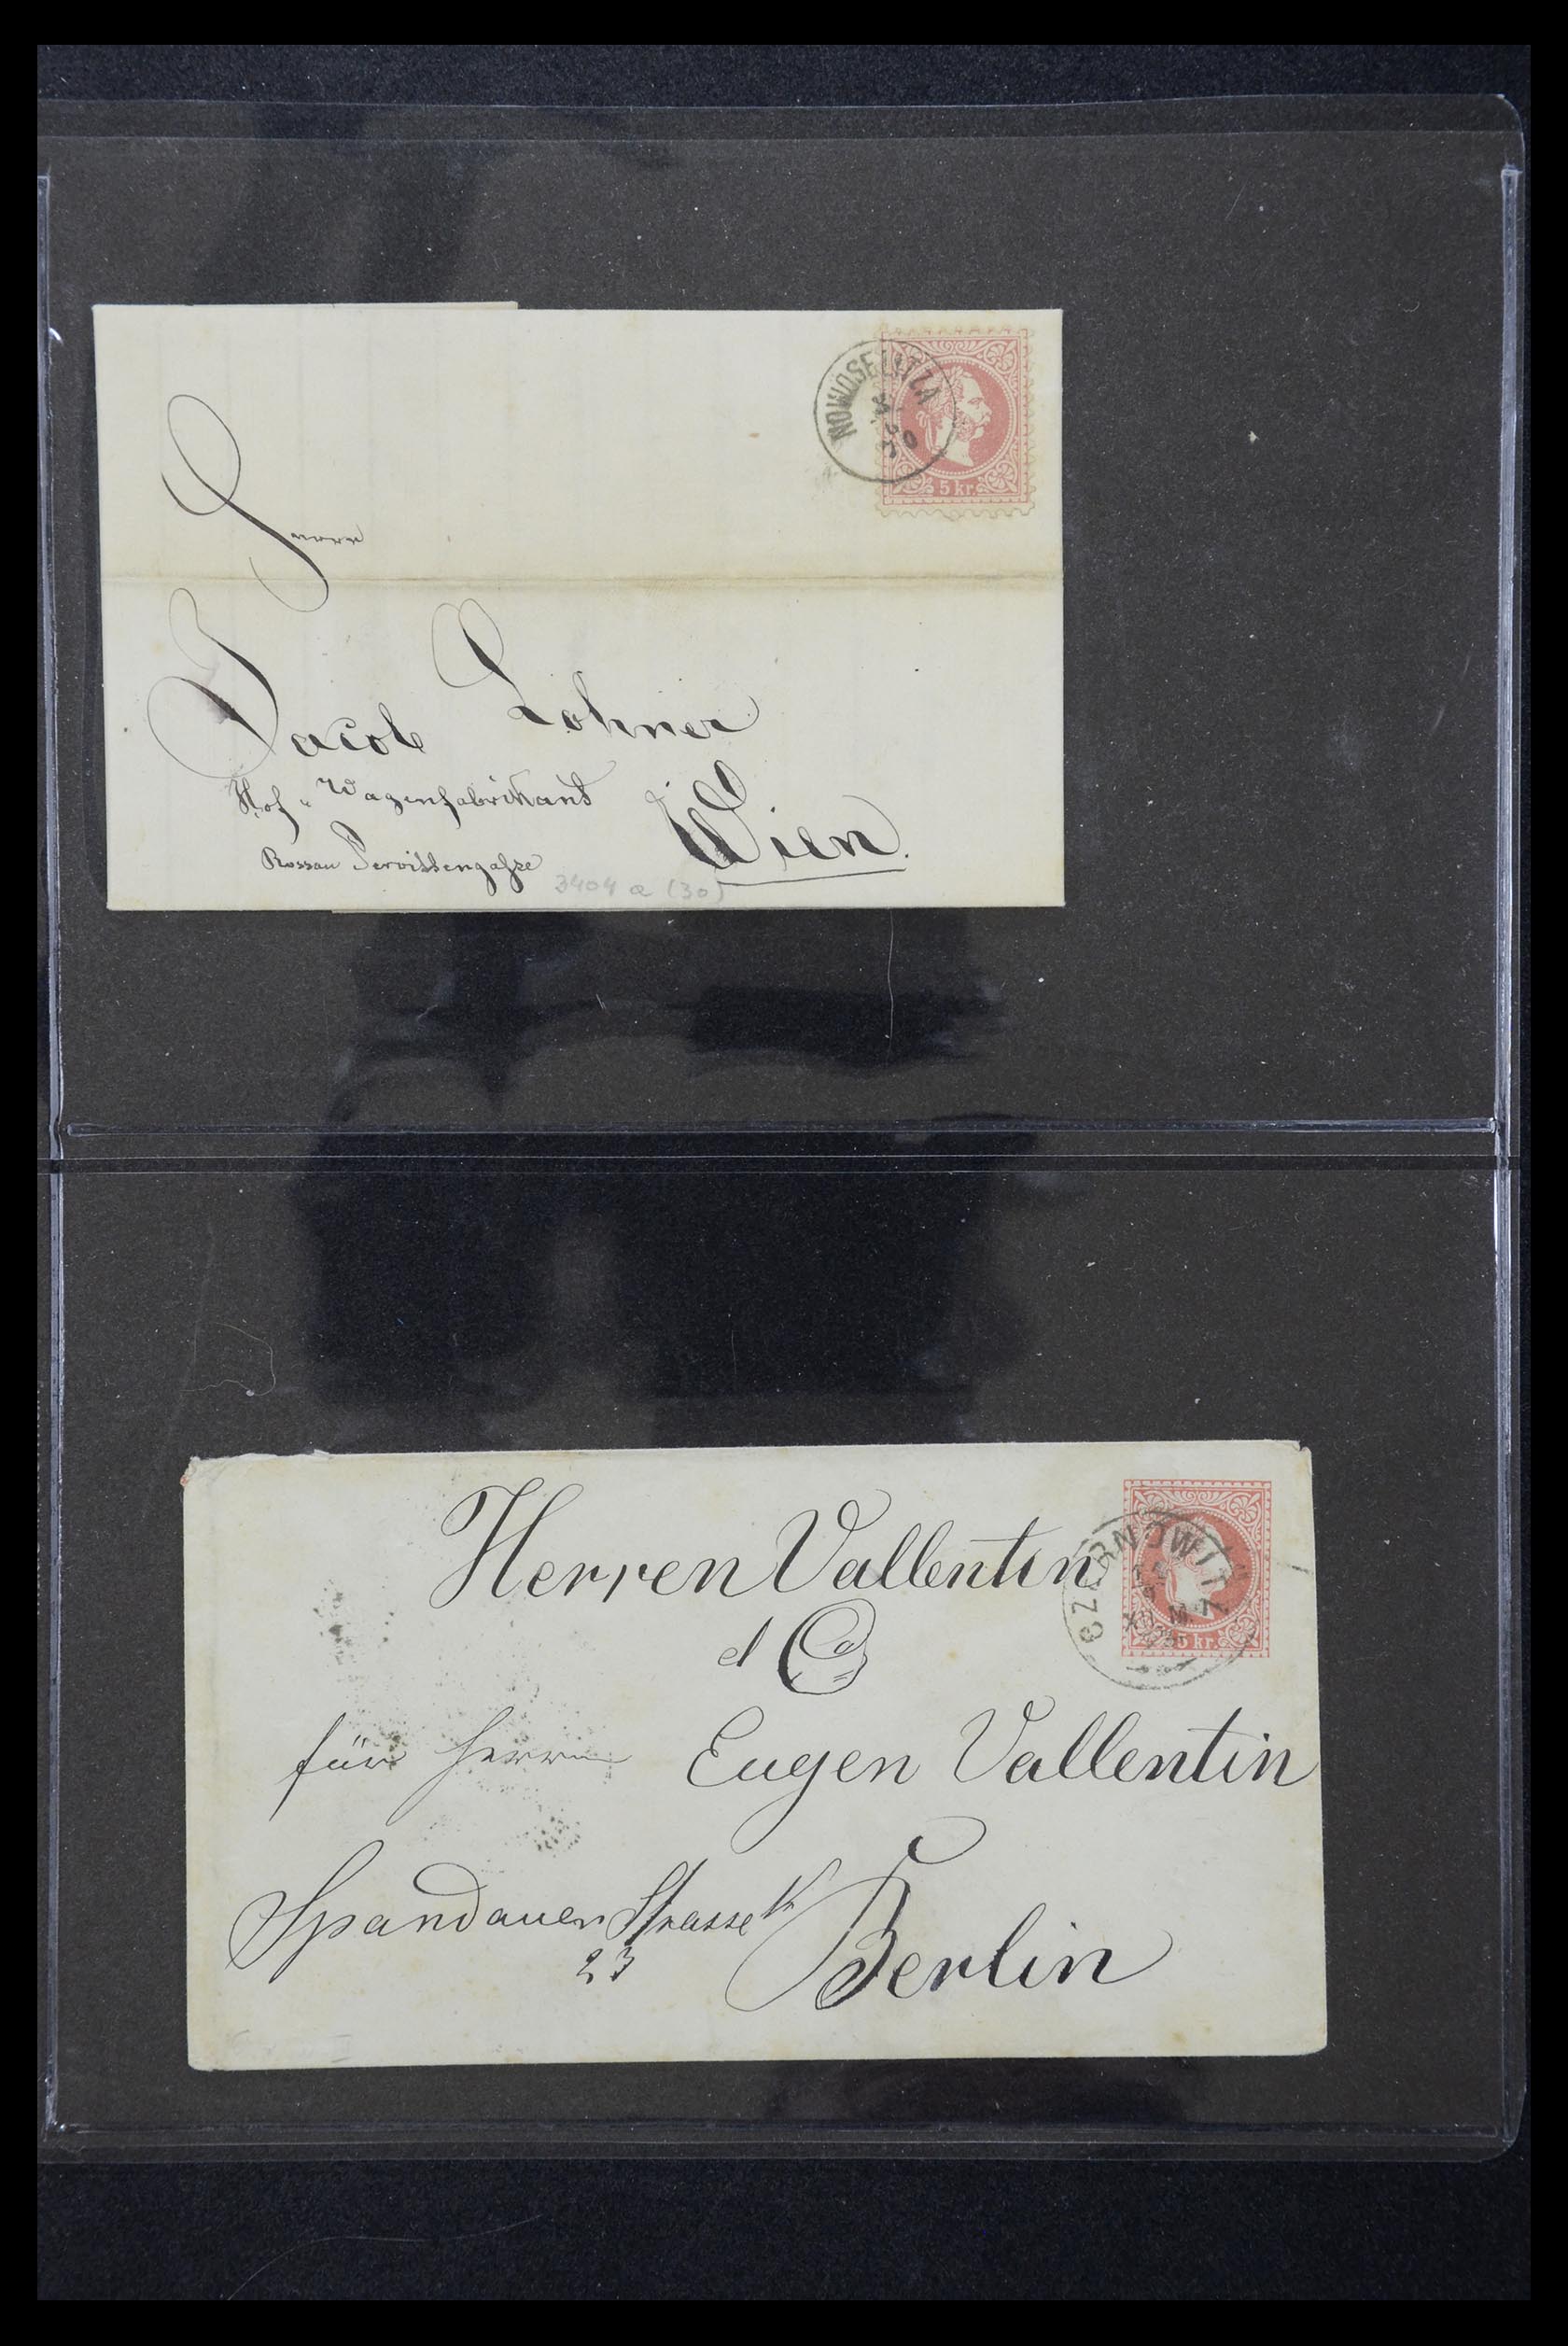 NOWOSELITZA
5 kr.
Herrn
Jacob Lohner
Hof-Wagenfabrikant
Wien.
Rossau Servittengasse
3404 a (30)
Herren Vallentin
& Co
CZERNOWITZ
5 kr.
für Herrn Eugen Vallentin
Spandauer Strasse
23
Berlin